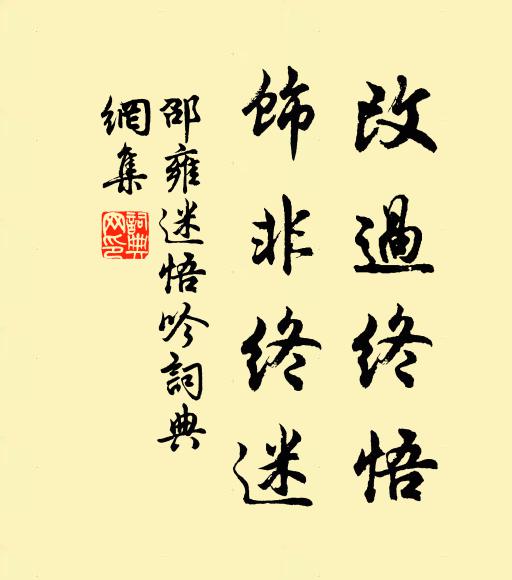 改過終悟
飾非終迷
邵雍迷悟吟詞典
網集
詞典
网印